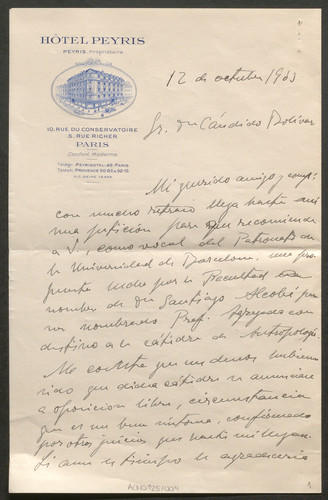 HÔTEL PEYRIS
PEYRIS, Propriétaire
10, RUE DU CONSERVATOIRE
5, RUE RICHER
PARIS
Confort Moderne
Télégr. PEYRISOTEL-45-PARIS
12 de octubre 1933
Sr. Don Cándido Bolívar
Mi querido amigo y
con mucho retraso llega hasta mí
una petición para que recomiende
a V., como vocal del Patronato de
la Universidad de Barcelona, una pro
puesta hecha por la Facultad
nombre de Dn Santiago Alcobé para
ser nombrado Prof. Agregado con
destino a la cátedra de Antropología
Me consta que sus deseos hubieran
sido que dicha cátedra se anunciase
a oposición libre, circunstancia
que es un buen síntoma, confirmado
por otros juicios que hasta mí llegan.
Si aun es tiempo le agradecería